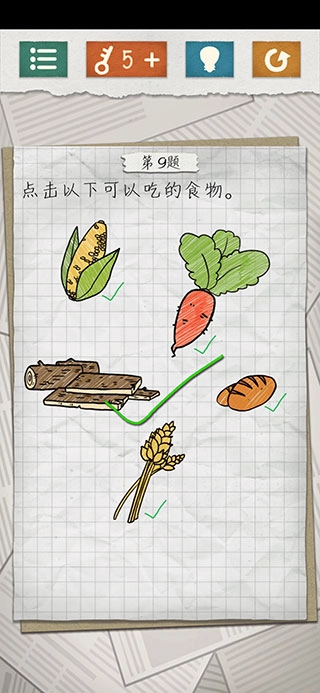 5 +
第9题
点击以下可以吃的食物。